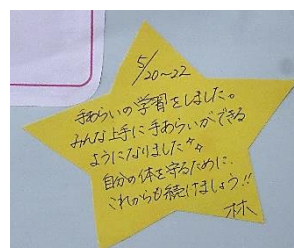 5/20~22
手あらいの学習をしました。
みんな上手に手あらいができる
ようになりました✨
自分の体を守るために、
これからも続けましょう!!
林